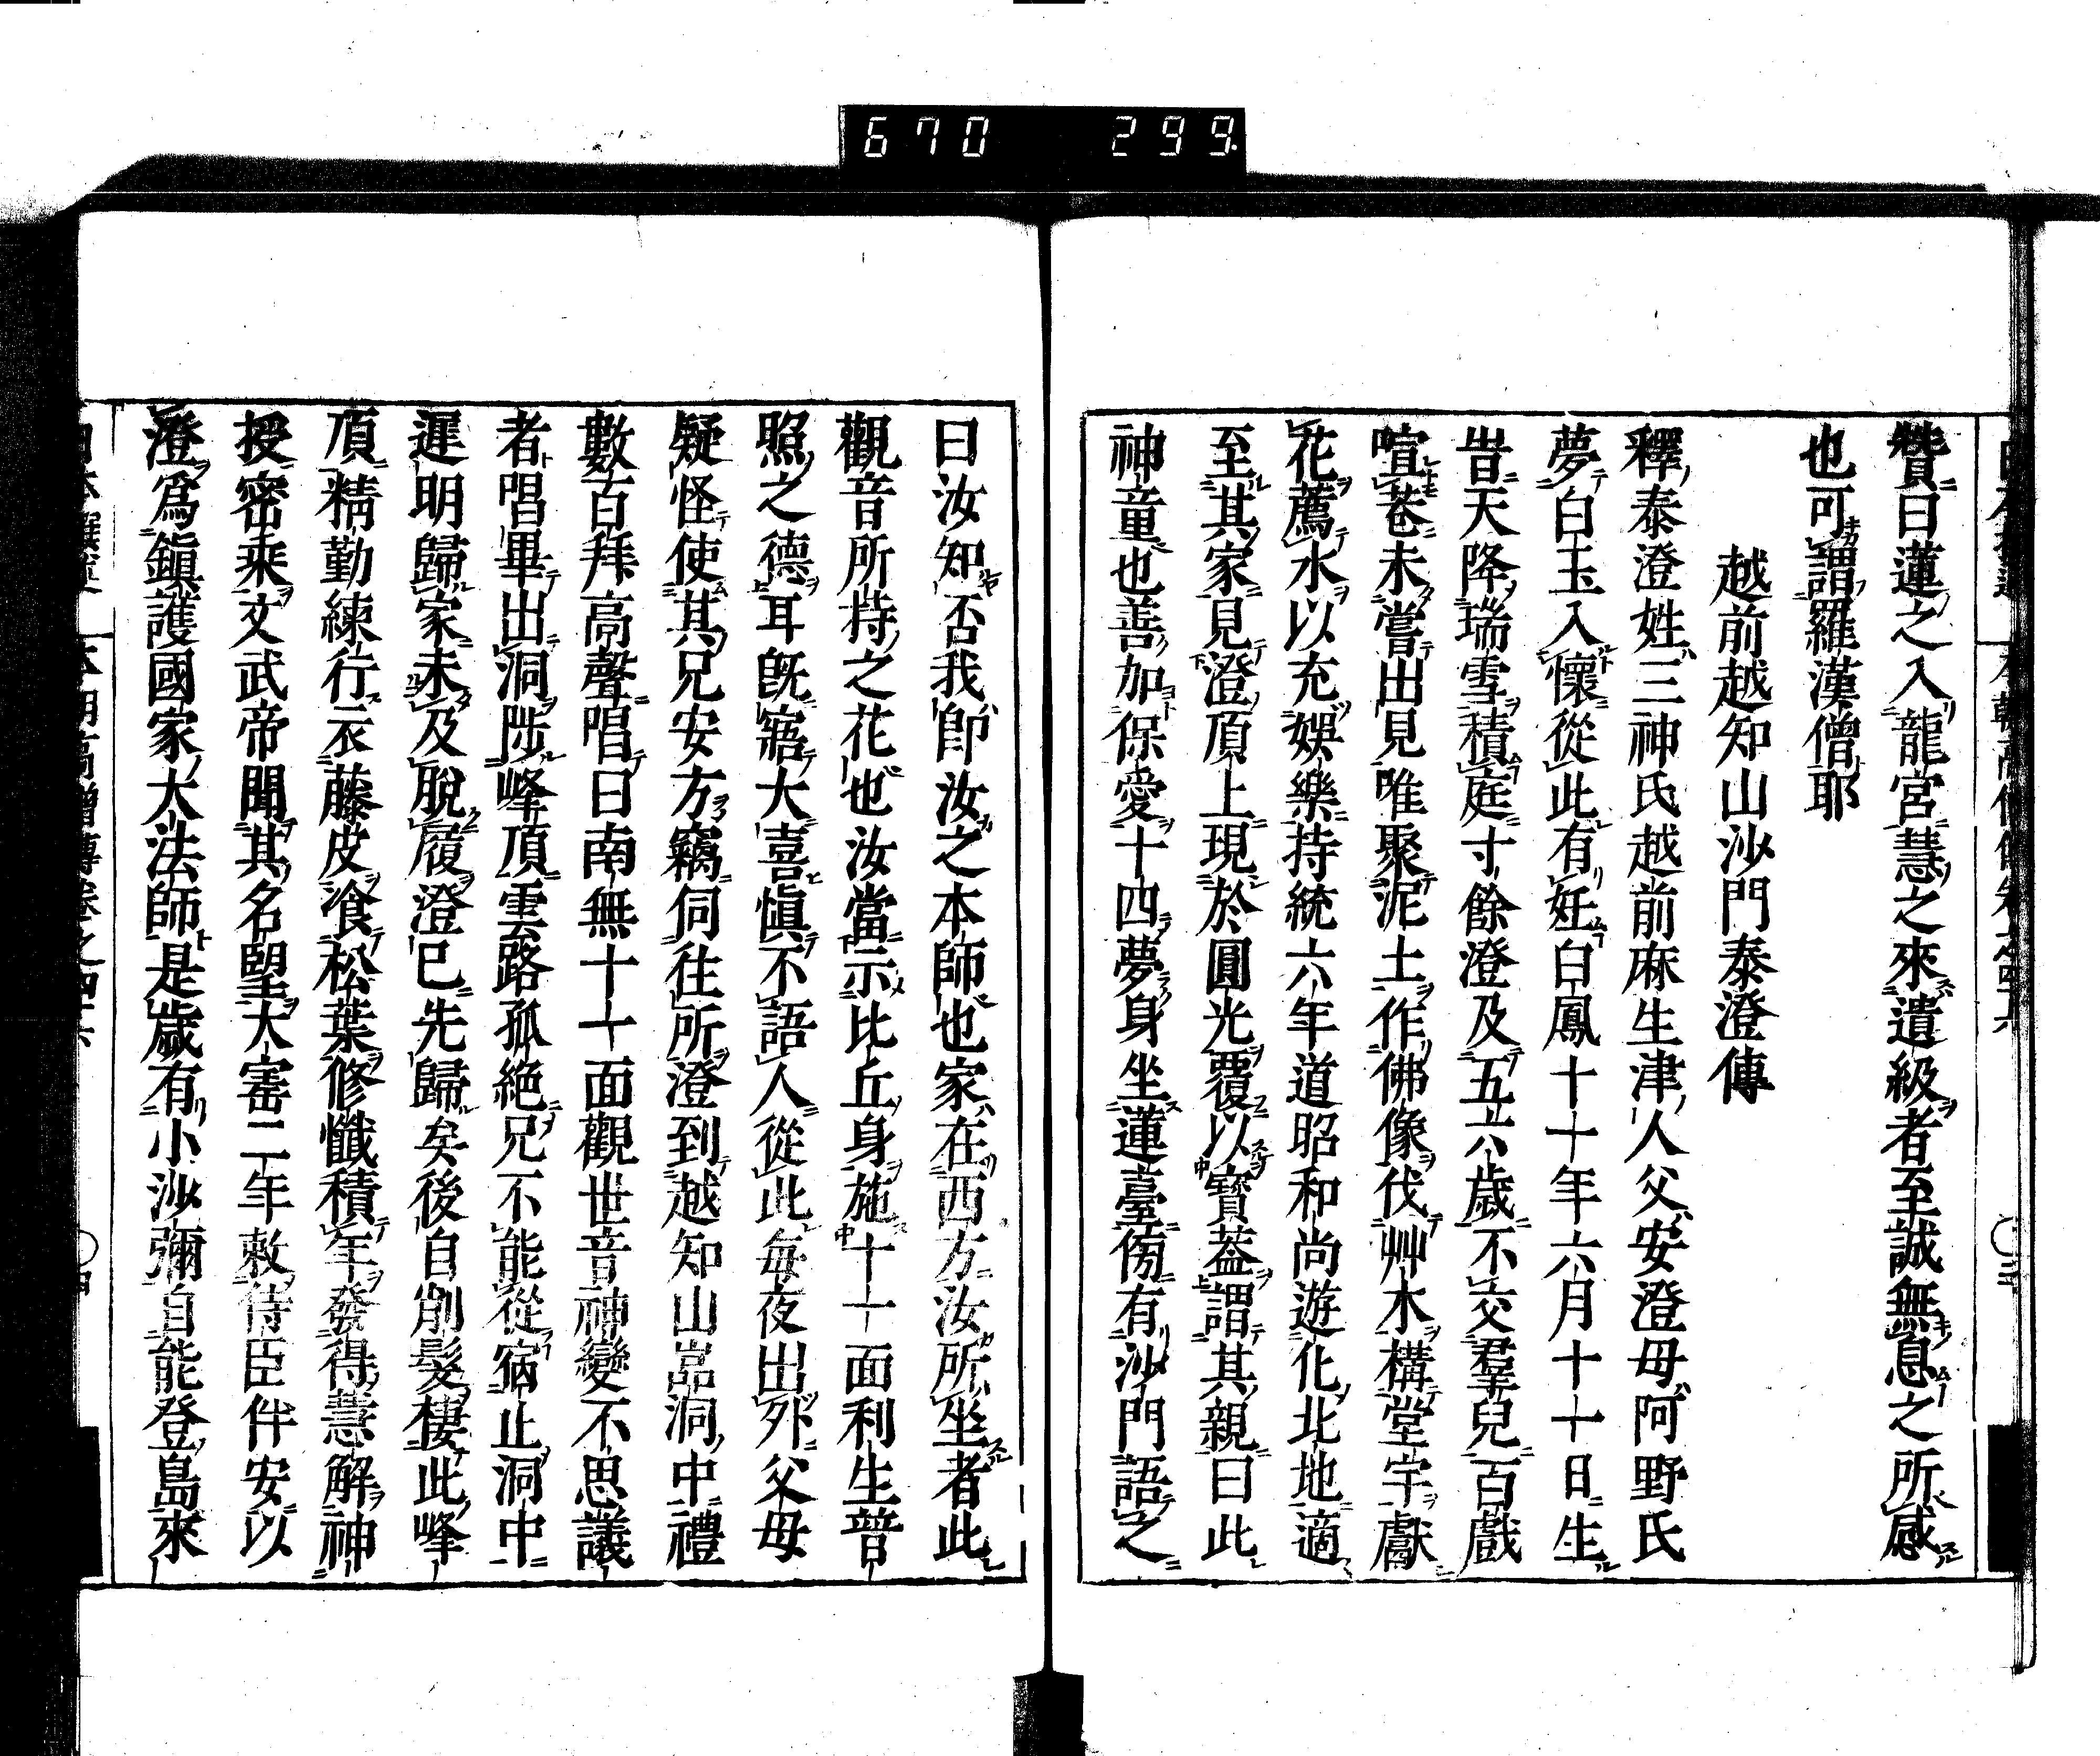 670 299
贊曰蓮之入龍宮慧之來遺級者至誠無息之所感
也可謂羅漢僧耶
越前越知山沙門泰澄傳
釋泰澄姓三神氏越前麻生津人父安澄母阿野氏
夢白玉入懷從此有妊白鳳十一年六月十一日生
旹天降瑞雪積庭寸餘澄及五六歲不交羣兒百戲
喧巷未嘗出見唯聚泥土作佛像伐艸木構堂宇獻
花薦水以充娛樂持統六年道昭和尚遊化北地適
至其家見澄頂上現於圓光覆以寶蓋謂其親曰此
神童也善加保愛十四夢身坐蓮臺傍有沙門語之
曰汝知否我卽汝之本師也家在西方汝所坐者此
觀音所持之花也汝當示比丘身施十一面利生普
照之德耳旣寤大喜愼不語人從此每夜出外父母
疑怪使其兄安方竊伺往所澄到越知山嵓洞中禮
數百拜高聲唱曰南無十一面觀世音神變不思議
者唱畢出洞陟峰頂雲路孤絕兄不能從宿止洞中
遲明歸家未及脫履澄已先歸矣後自削髮棲此峰
頂精勤練行衣藤皮飡松葉修懺積年發得慧解神
授密乘文武帝聞其名望大寶二年敕侍臣伴安以
澄爲鎭護國家大法師是歲有小沙彌自能登島來
本朝高僧傳卷之四十六